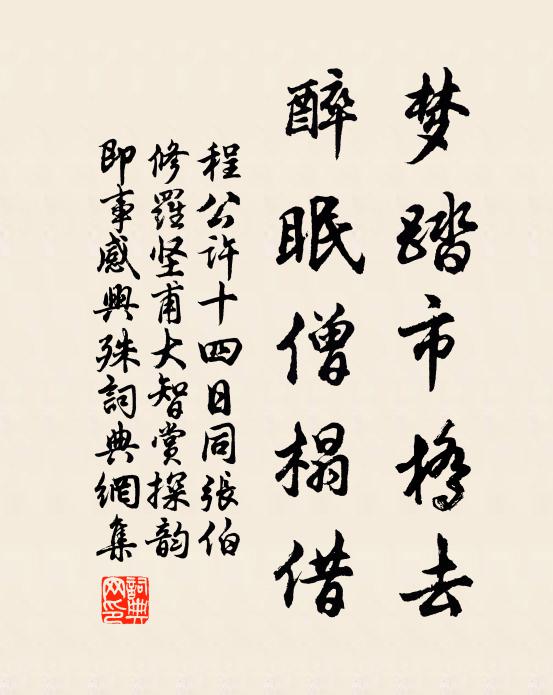 梦踏市桥去
醉眠僧榻借
程公许十四日同張伯
修羅坚甫大智赏探韵
即事感興殊詞典網集